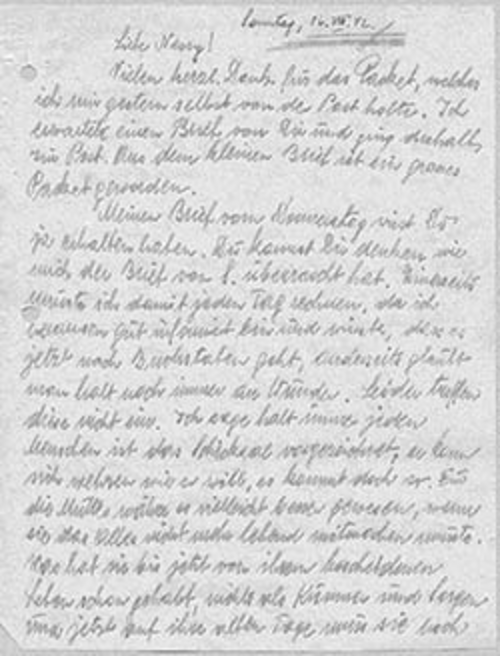 Sonntag, 16. VIII. 42.
Liebe Nanny!
Vielen herzl. Dank für das Packet, welches
ich mir gestern selbst von der Post holte. Ich
erwartete einen Brief von Dir und ging deshalb
zur Post. Aus dem kleinen Brief ist ein grosses
Packet geworden.
Meinen Brief vom Donnerstag wirst Du
ja erhalten haben. Du kannst Dir denken wie
mich der Brief von überrascht hat. Einerseits
musste ich damit jeden Tag rechnen, da ich
gut informiert bin und wusste, dass es
jetzt nach Buchstaben geht, anderseits glaubt
man halt noch immer an Wunder. Leider treffen
diese nicht ein. Ich sage halt immer jedem
Menschen ist das Schicksal vorgezeichnet, er kann
sich wehren wie er will, es kommt doch so. Für
die Mutter wäre es vielleicht besser gewesen, wenn
sie das alles nicht mehr lebend mitmachen müsste.
Was hat sie bis jetzt von ihrem bescheidenen
Leben schon gehabt, nichts als Kummer und Sorgen
und jetzt auf ihre alten Tage muss sie noch